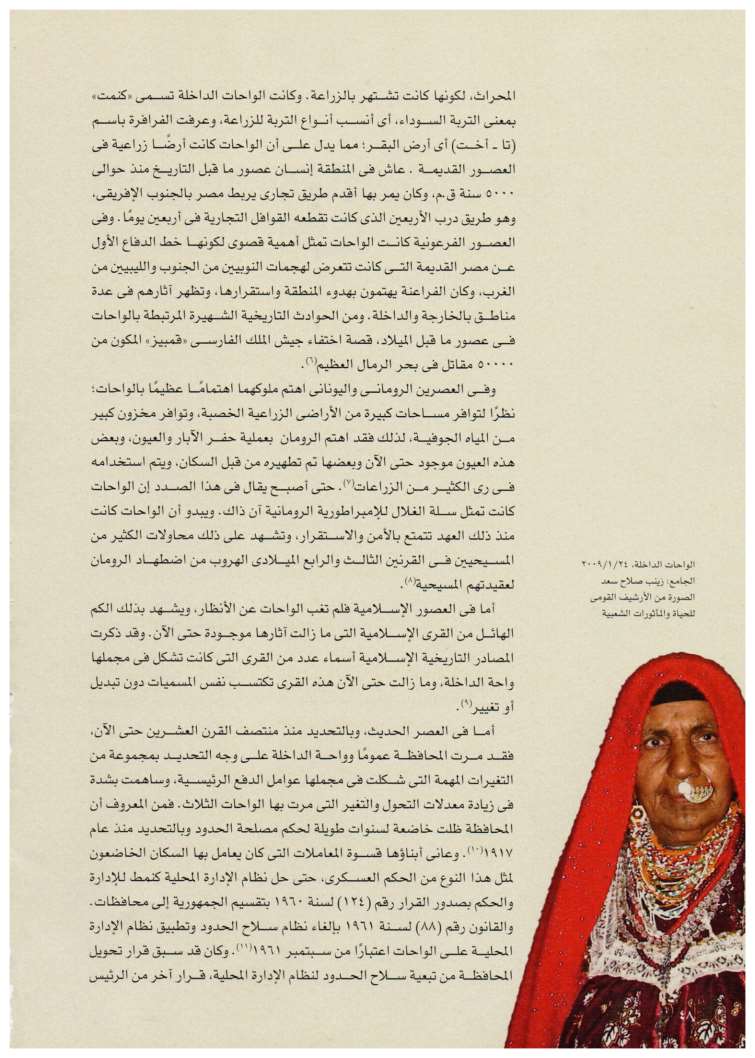 المحراث، لكونها كانت تشتهر بالزراعة. وكانت الواحات الداخلة تسمى «كنمت»
بمعنى التربة السوداء، أى أنسب أنواع التربة للزراعة، وعرفت الفرافرة باسم
(تا ـ أخت) أى أرض البقر؛ مما يدل على أن الواحات كانت أرضًا زراعية فى
العصور القديمة . عاش فى المنطقة إنسان عصور ما قبل التاريخ منذ حوالى
٥٠٠٠ سنة ق.م، وكان يمر بها أقدم طريق تجارى يربط مصر بالجنوب الإفريقى،
وهو طريق درب الأربعين الذى كانت تقطعه القوافل التجارية فى أربعين يومًا. وفى
العصور الفرعونية كانت الواحات تمثل أهمية قصوى لكونها خط الدفاع الأول
عن مصر القديمة التى كانت تتعرض لهجمات النوبيين من الجنوب والليبيين من
الغرب، وكان الفراعنة يهتمون بهدوء المنطقة واستقرارها، وتظهر آثارهم فى عدة
مناطق بالخارجة والداخلة. ومن الحوادث التاريخية الشهيرة المرتبطة بالواحات
فى عصور ما قبل الميلاد، قصة اختفاء جيش الملك الفارسى «قمبيز» المكون من
٥٠٠٠٠ مقاتل فى بحر الرمال العظيم(٦).
وفى العصرين الرومانى واليونانى اهتم ملوكهما اهتمامًا عظيمًا بالواحات؛
نظرًا لتوافر مساحات كبيرة من الأراضى الزراعية الخصبة، وتوافر مخزون كبير
من المياه الجوفية، لذلك فقد اهتم الرومان بعملية حفر الآبار والعيون، وبعض
هذه العيون موجود حتى الآن وبعضها تم تطهيره من قبل السكان، ويتم استخدامه
فى رى الكثير من الزراعات(٧). حتى أصبح يقال فى هذا الصدد إن الواحات
كانت تمثل سلة الغلال للإمبراطورية الرومانية آن ذاك. ويبدو أن الواحات كانت
منذ ذلك العهد تتمتع بالأمن والاستقرار، وتشهد على ذلك محاولات الكثير من
المسيحيين فى القرنين الثالث والرابع الميلادى الهروب من اضطهاد الرومان
لعقيدتهم المسيحية(٨).
أما فى العصور الإسلامية فلم تغب الواحات عن الأنظار، ويشهد بذلك الكم
الهائل من القرى الإسلامية التى ما زالت آثارها موجودة حتى الآن. وقد ذكرت
المصادر التاريخية الإسلامية أسماء عدد من القرى التى كانت تشكل فى مجملها
واحة الداخلة، وما زالت حتى الآن هذه القرى تكتسب نفس المسميات دون تبديل
أو تغيير(٩).
أما فى العصر الحديث، وبالتحديد منذ منتصف القرن العشرين حتى الآن،
فقد مرت المحافظة عمومًا وواحة الداخلة على وجه التحديد بمجموعة من
التغيرات المهمة التى شكلت فى مجملها عوامل الدفع الرئيسية، وساهمت بشدة
فى زيادة معدلات التحول والتغير التى مرت بها الواحات الثلاث. فمن المعروف أن
المحافظة ظلت خاضعة لسنوات طويلة لحكم مصلحة الحدود وبالتحديد منذ عام
١٩١٧(١٠). وعانى أبناؤها قسوة المعاملات التى كان يعامل بها السكان الخاضعون
لمثل هذا النوع من الحكم العسكرى، حتى حل نظام الإدارة المحلية كنمط للإدارة
والحكم بصدور القرار رقم (١٢٤) لسنة ١٩٦٠ بتقسيم الجمهورية إلى محافظات.
والقانون رقم (٨٨) لسنة ١٩٦١ بإلغاء نظام سلاح الحدود وتطبيق نظام الإدارة
المحلية على الواحات اعتبارًا من سبتمبر ١٩٦١(١١). وكان قد سبق قرار تحويل
المحافظة من تبعية سلاح الحدود لنظام الإدارة المحلية، قرار آخر من الرئيس
الواحات الداخلة، ٢٠٠٩/١/٢٤
الجامع: زينب صلاح سعد
الصورة من الأرشيف القومى
للحياة والمأثورات الشعبية
٤٨